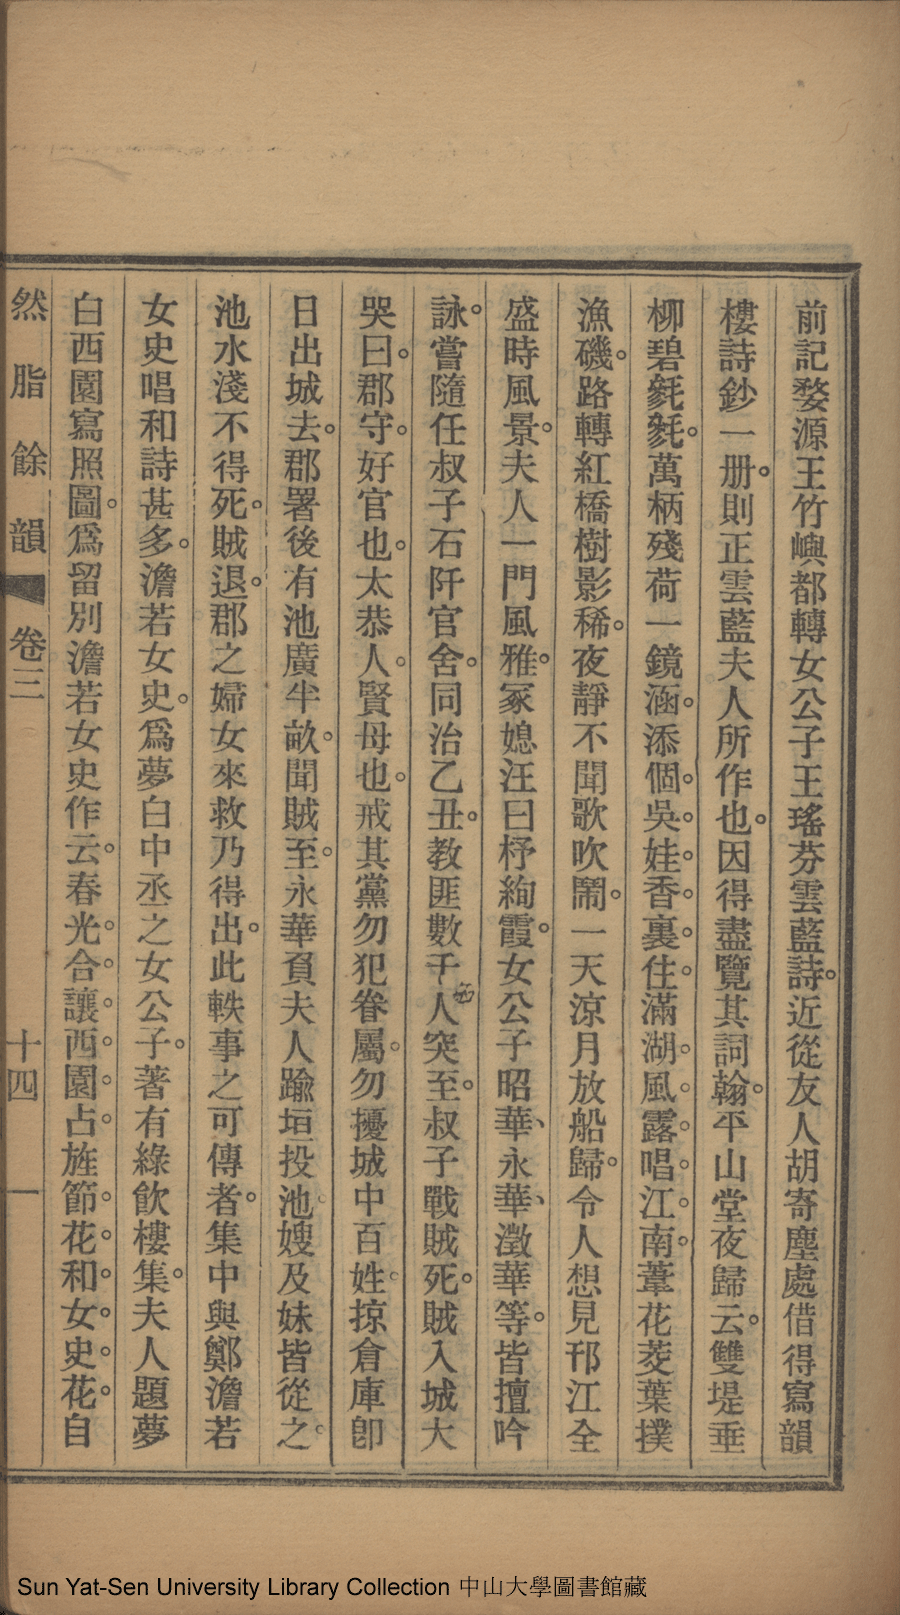 前記婺源王竹嶼都轉女公子王瑤芬雲藍詩。近從友人胡寄塵處借得寫韻
樓詩鈔一册。則正雲藍夫人所作也。因得盡覽其詞翰。平山堂夜歸云。雙堤垂
柳碧毿毿。萬柄殘荷一鏡涵。添個。吳。娃。香。裏。住。滿湖。風。露。唱。江。南。葦花菱葉撲
漁磯。路轉紅橋樹影稀。夜靜不聞歌吹鬧。一天涼月放船歸。令人想見邗江全
盛時風景。夫人一門風雅。冢媳汪曰杼絢霞。女公子昭華、永華、澂華等。皆擅吟
詠。嘗隨任叔子石阡官舍。同治乙丑。教匪數千人突至。叔子戰賊死。賊入城大
哭曰。郡守。好官也。太恭人。賢母也。戒其黨勿犯眷屬。勿擾城中百姓。掠倉庫卽
日出城去。郡署後有池廣半畝。聞賊至。永華負夫人踰垣投池。嫂及妹皆從之。
池水淺不得死。賊退。郡之婦女來救乃得出。此軼事之可傳者。集中與鄭澹若
女史唱和詩甚多。澹若女史。爲夢白中丞之女公子。著有綠飮樓集。夫人題夢
白西園寫照圖。爲留別澹若女史作云。春光。合。讓。西。園。占。旌節。花。和。女。史。花。自
然脂餘韻 卷三 十四 一
Sun Yat-Sen University Library Collection 中山大學圖書館藏